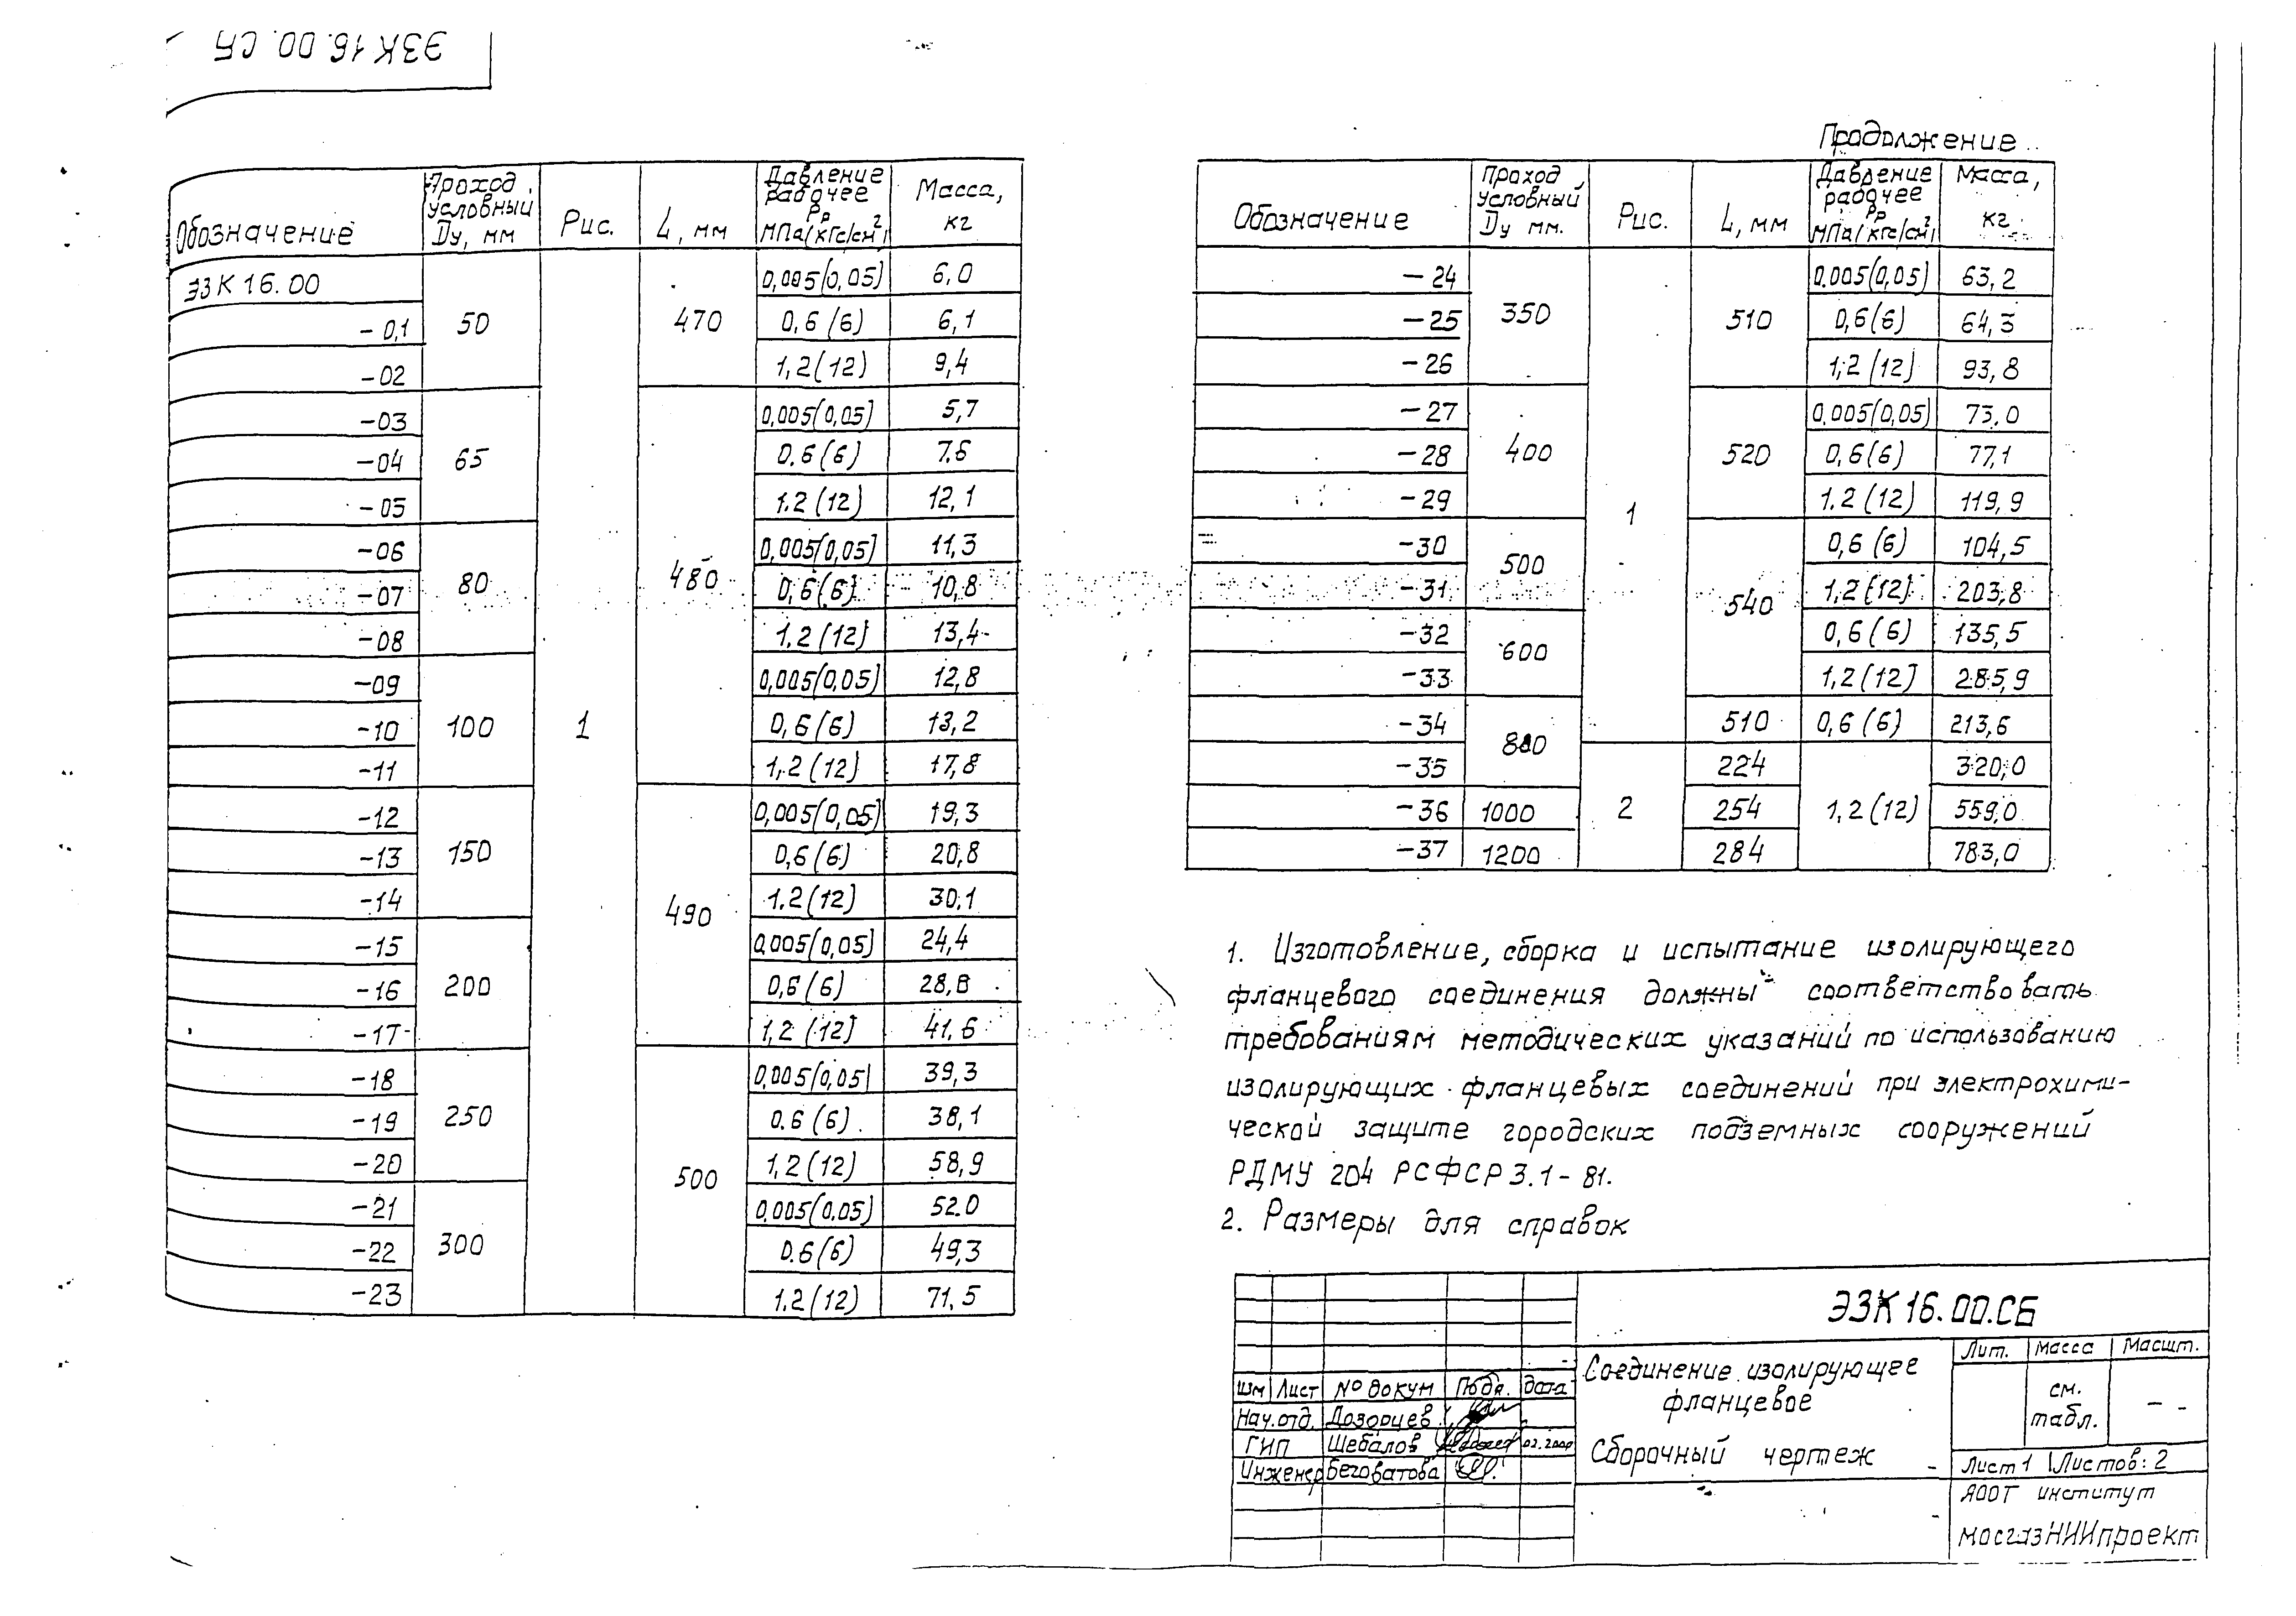 ЭЗК 16.00.СБ
Обозначение | Проход условный Dу, мм | Рис. | L, мм | Давление рабочее Рр МПа(кгс/см²) | Масса, кг
ЭЗК 16.00 | 50 | 1 | 470 | 0,005(0,05) | 6,0
-01 | 0,6(6) | 6,1
-02 | 1,2(12) | 9,4
-03 | 65 | 480 | 0,005(0,05) | 5,7
-04 | 0.6(6) | 7.6
-05 | 1.2(12) | 12,1
-06 | 80 | 0,005(0,05) | 11,3
-07 | 0,6(6) | 10,8
-08 | 1,2(12) | 13,4
-09 | 100 | 0,005(0,05) | 12,8
-10 | 0,6(6) | 13,2
-11 | 1,2(12) | 17,8
-12 | 150 | 490 | 0,005(0,05) | 19,3
-13 | 0,6(6) | 20,8
-14 | 1.2(12) | 30,1
-15 | 200 | 0,005(0,05) | 24,4
-16 | 0,6(6) | 28,8
-17 | 1,2(12) | 41,6
-18 | 250 | 500 | 0,005(0,05) | 39,3
-19 | 0.6(6) | 38,1
-20 | 1,2(12) | 58,9
-21 | 300 | 0,005(0,05) | 52.0
-22 | 0.6(6) | 49,3
-23 | 1.2(12) | 71,5
Продолжение
Обозначение | Проход условный Dу мм. | Рис. | L, мм | Давление рабочее Рр МПа(кгс/см²) | Масса, кг
-24 | 350 | 1 | 510 | 0.005(0,05) | 63,2
-25 | 0,6(6) | 64,3
-26 | 1,2(12) | 93,8
-27 | 400 | 520 | 0,005(0,05) | 73,0
-28 | 0,6(6) | 77,1
-29 | 1.2(12) | 119,9
-30 | 500 | 540 | 0,6(6) | 104,5
-31 | 1,2(12) | 203,8
-32 | 600 | 0,6(6) | 135,5
-33 | 1,2(12) | 285,9
-34 | 800 | 510 | 0,6(6) | 213,6
-35 | 2 | 224 | 1,2(12) | 320,0
-36 | 1000 | 254 | 559,0
-37 | 1200 | 284 | 783,0
1. Изготовление, сборка и испытание изолирующего
фланцевого соединения должны соответствовать
требованиям методических указаний по использованию
изолирующих фланцевых соединений при электрохими-
ческой защите городских подземных сооружений
РДМУ 204 РСФСР 3.1-81.
2. Размеры для справок
ЭЗК 16.00.СБ
Соединение изолирующее
фланцевое
Сборочный чертеж
Лит. | Масса | Масшт.
см. табл. | --
Лист 1 | Листов: 2
Изм | Лист | № докум | Подп. | Дата
Нач.отд. | Дозорцев
ГИП | Шебалов | 02.2000
Инженер | Беговатова
АООТ институт
МосгазНИИпроект